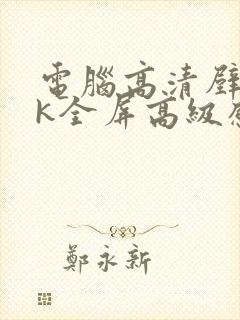 電腦高清壁
K全屏高級
鄭永新